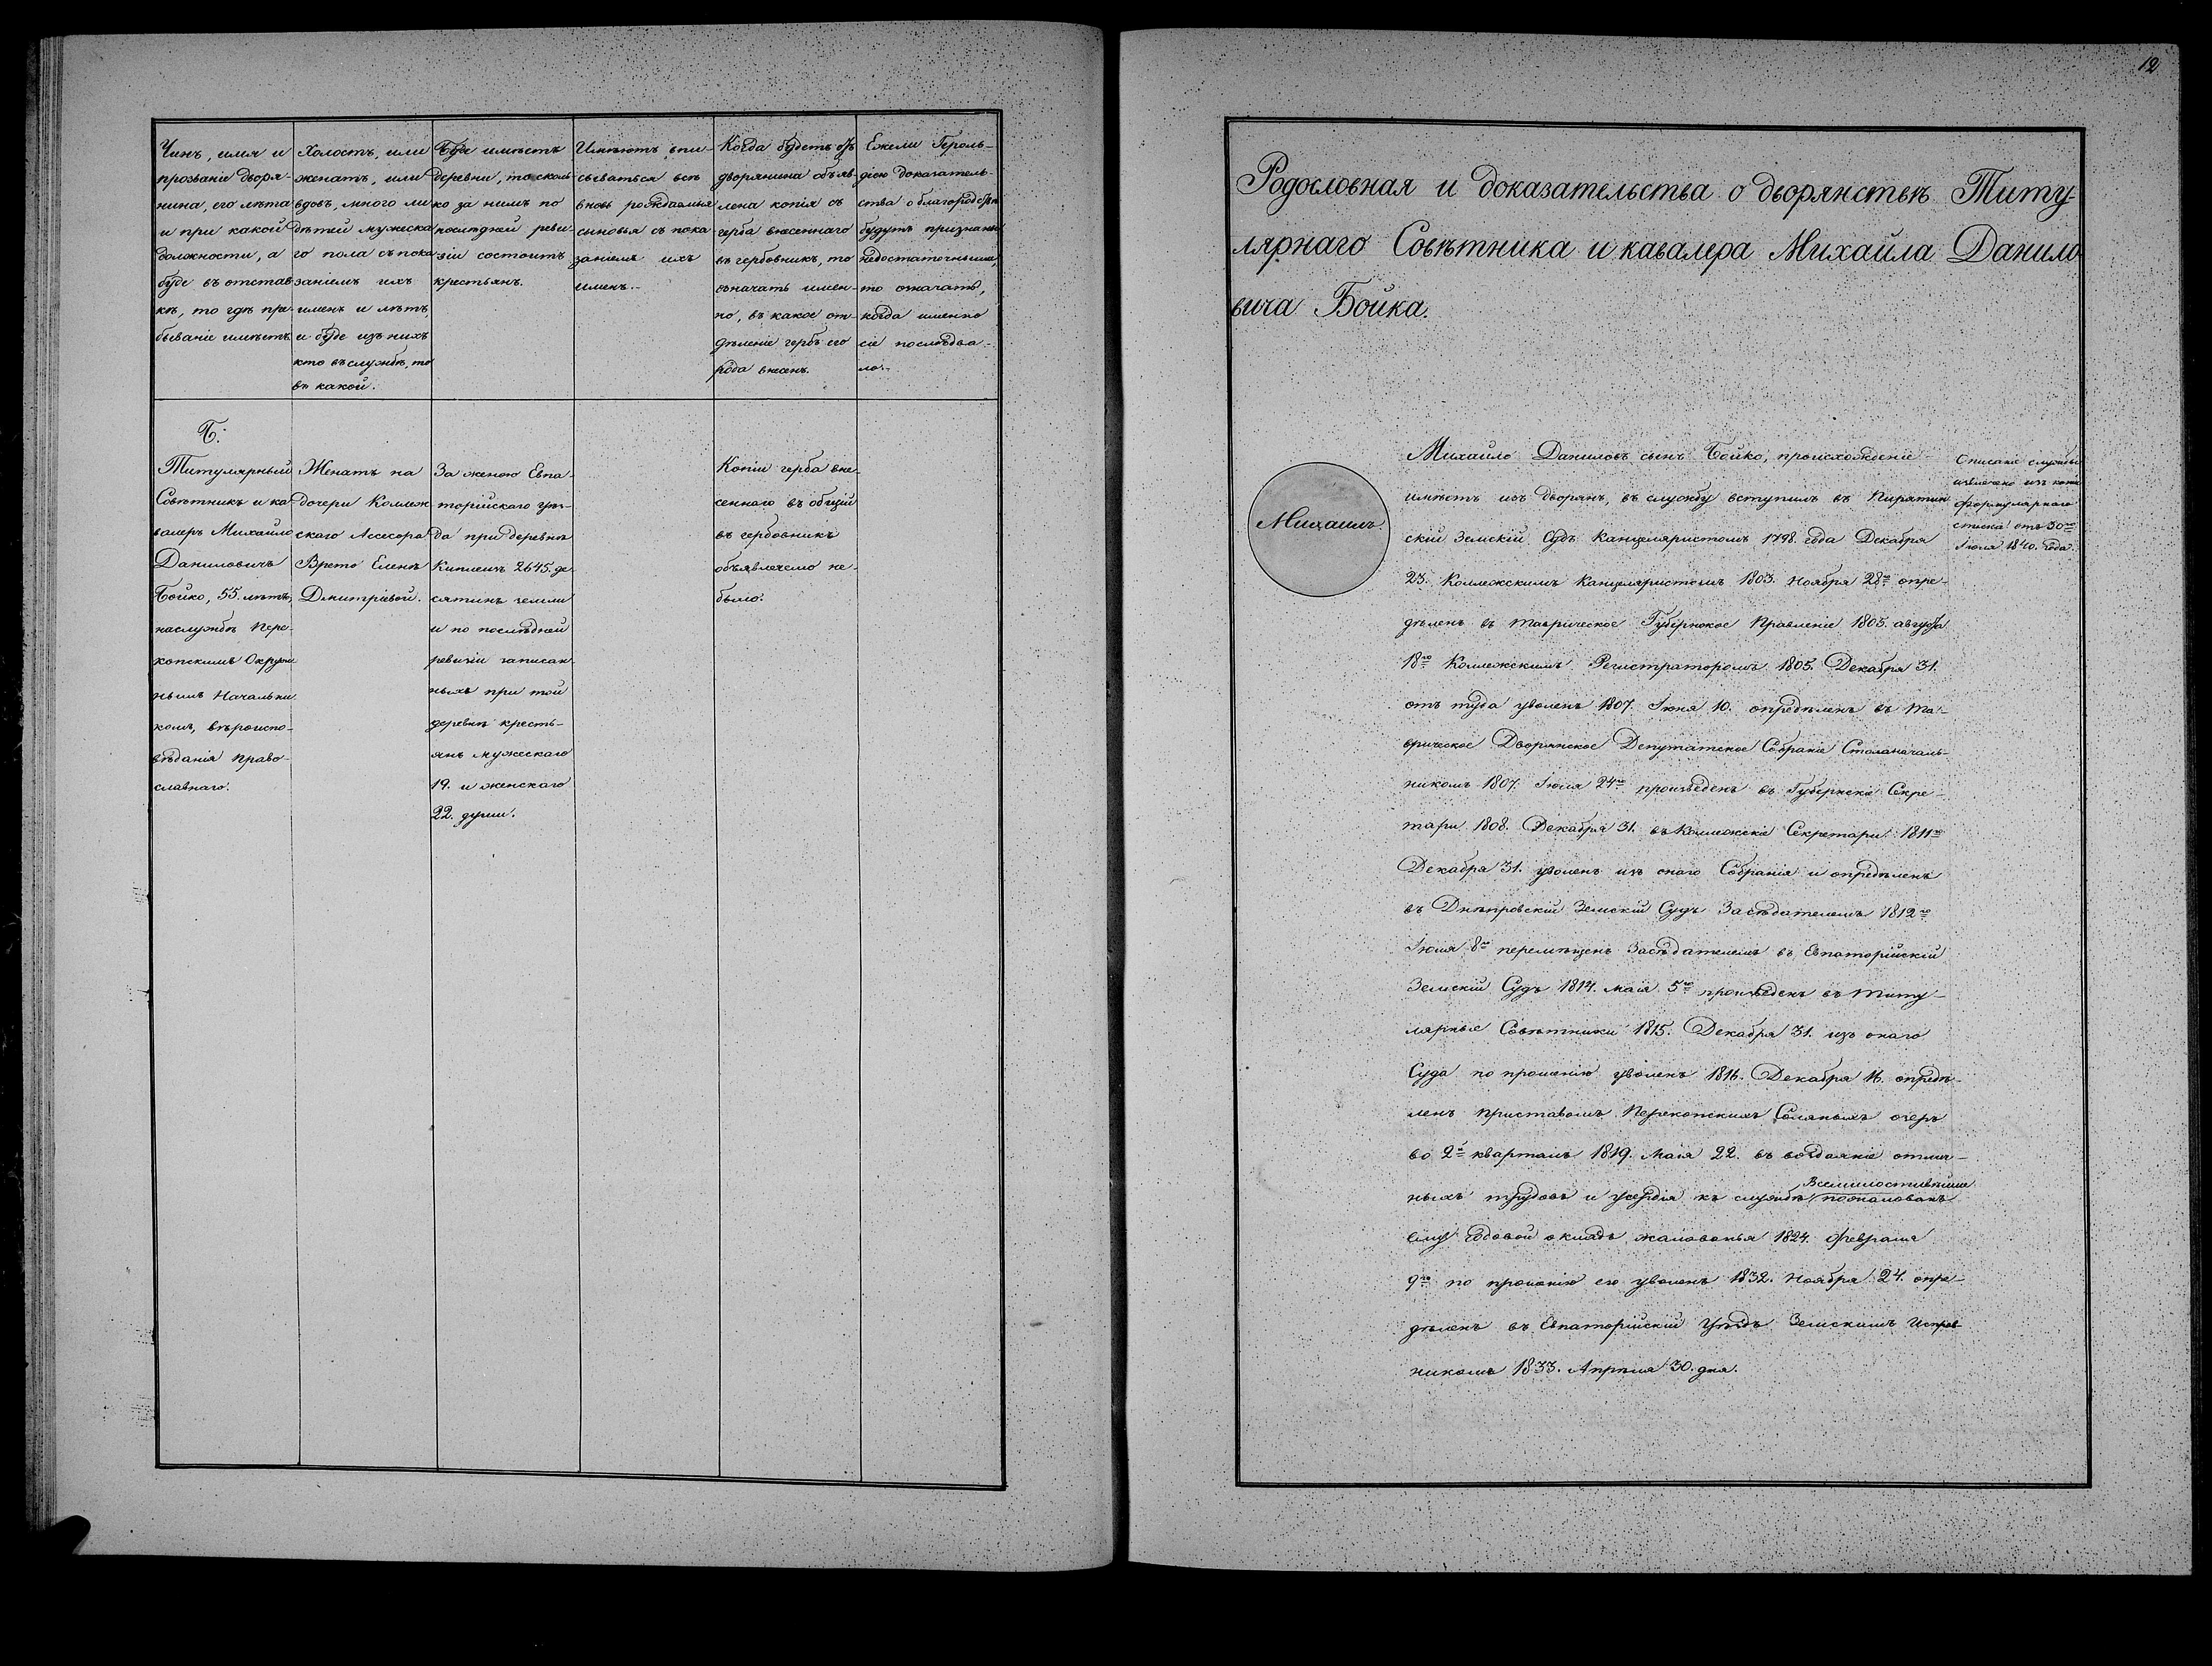 Чинъ, имя и
прозваніе дворя-
нина, его лѣта
и при какой
должности, а
буде въ отстав
кѣ, то гдѣ пре-
бываніе имѣетъ.
Холостъ, или
женатъ, или
вдовъ, много ли
дѣтей мужеска
го пола съ пока
заніемъ ихъ
именъ и лѣтъ,
и буде изъ нихъ
кто въ службѣ, то
въ какой.
Буде имѣетъ
деревни, то сколь
ко за нимъ по
послѣдней реви-
зіи состоитъ
крестьянъ.
Имѣютъ впи-
сываться всѣ
вновь рождаемыя
сыновья съ пока
заніемъ ихъ
именъ.
Когда будетъ отъ
дворянина объяв-
лена копія съ
герба внесеннаго
въ гербовникъ, то
означать имен-
но, въ какое от-
дѣленіе гербъ его
рода внесенъ.
Ежели Героль-
діею доказатель-
ства о благородствѣ
будутъ признаны
недостаточными,
то означать,
когда именно
сіе послѣдова-
ло.
Б.
Титулярный
Совѣтникъ и ка
валеръ Михайло
Даниловичъ
Бойко, 55. лѣтъ,
на службѣ Пере-
копскимъ Окруж
нымъ Начальни
комъ, вѣроиспо-
вѣданія Право-
славнаго.
Женатъ на
дочери Коллеж
скаго Ассесора
Врето Еленѣ
Дмитріевой.
За женою Евпа-
торійскаго уѣз-
да при деревнѣ
Кипленъ 2645. де-
сятинъ земли
и по послѣдней
ревизіи записан-
ныхъ при той
деревнѣ кресть-
янъ мужескаго
19. и женскаго
22. души.
Копіи герба вне-
сеннаго въ общій
въ гербовникъ
объявляемо не-
было.
12
Родословная и доказательства о дворянствѣ Титу-
лярнаго Совѣтника и кавалера Михайла Данило
вича Бойка.
Михаилъ.
Михайло Даниловъ сынъ Бойко, происхожденіе
имѣетъ изъ дворянъ, въ службу вступилъ въ Пирятин
скій Земскій Судъ Канцеляристомъ 1798. года Декабря
23. Коллежскимъ Канцеляристомъ 1803. Ноября 28го опре-
дѣленъ въ Таврическое Губернское Правленіе 1805. августа
18го Коллежскимъ Регистраторомъ 1805. Декабря 31.
отъ туда уволенъ 1807. Іюня 10. опредѣленъ въ Та-
врическое Дворянское Депутатское Собраніе Столоначаль-
никомъ 1807. Іюля 24го произведенъ въ Губернскіе Секре-
тари 1808. Декабря 31. въ Коллежскіе Секретари 1811го
Декабря 31. уволенъ изъ онаго Собранія и опредѣленъ
въ Днѣпровскій Земскій Судъ Засѣдателемъ 1812го
Іюля 8го перемѣщенъ Засѣдателемъ въ Евпаторійскій
Земскій Судъ 1814. Маія 5го произведенъ въ Титу-
лярные Совѣтники 1815. Декабря 31. изъ онаго
Суда по прошенію уволенъ 1816. Декабря 16. опредѣ-
ленъ Приставомъ Перекопскихъ Соляныхъ озеръ
во 2й кварталъ 1819. Маія 22. въ воздаяніе отлич-
ныхъ трудовъ и усердія къ службѣ Всемилостивѣйше пожалованъ
ему годовой окладъ жалованья 1824. февраля
9го по прошенію его уволенъ 1832. Ноября 24. опре-
дѣленъ въ Евпаторійскій Уѣздъ Земскимъ Исправ
никомъ 1833. Апрѣля 30. дня.
Описаніе службы
извлечено изъ копіи
формулярнаго
списка отъ 30го
Іюля 1840. года.